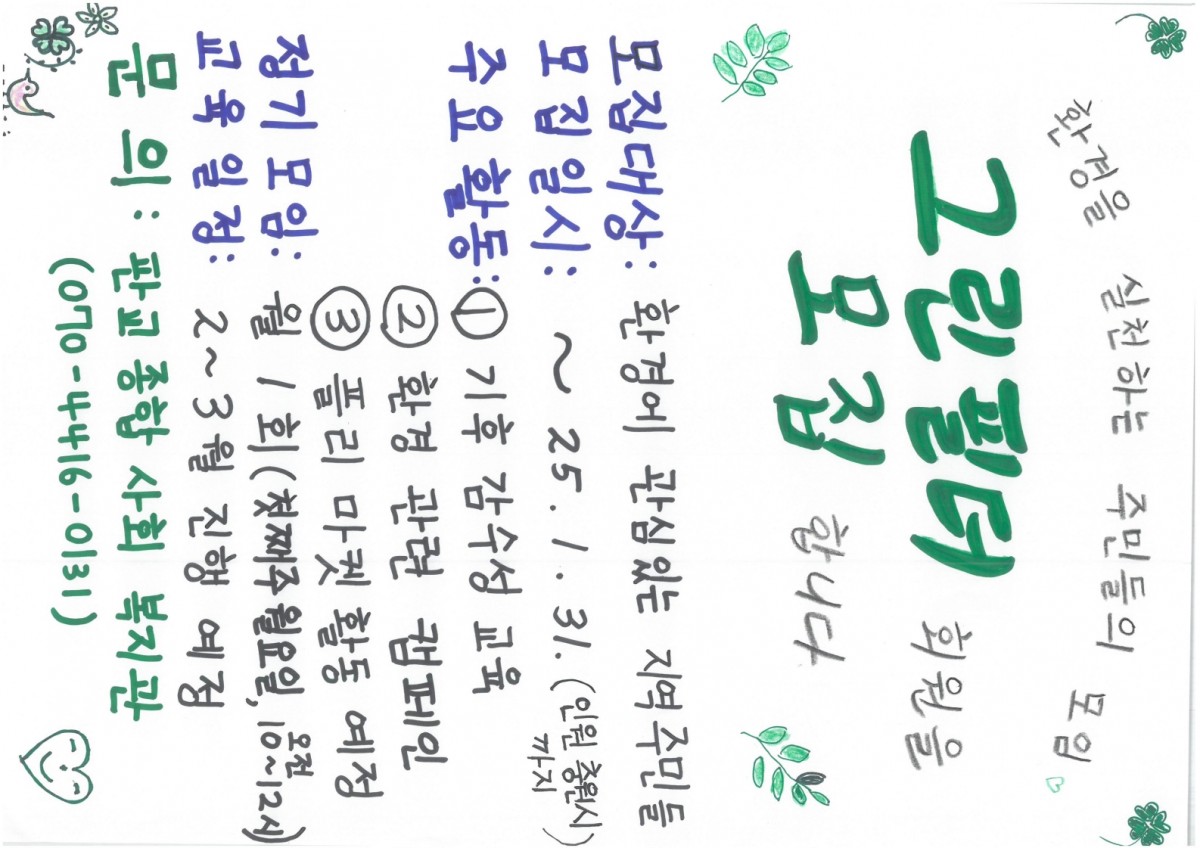 환경을 실천하는 주민들의 모임
그린필터 회원을
모집 합니다
모집대상: 환경에 관심있는 지역주민들
모집일시: ~ 25. 1. 31. (인원 충원시 까지)
주요활동: ① 기후 감수성 교육
② 환경 관련 캠페인
③ 플리마켓 활동 예정
정기모임: 월 1회 (첫째주 월요일, 오전 10~12시)
교육일정: 2~3월 진행 예정
문의: 판교종합사회복지관
(070-4416-0131)